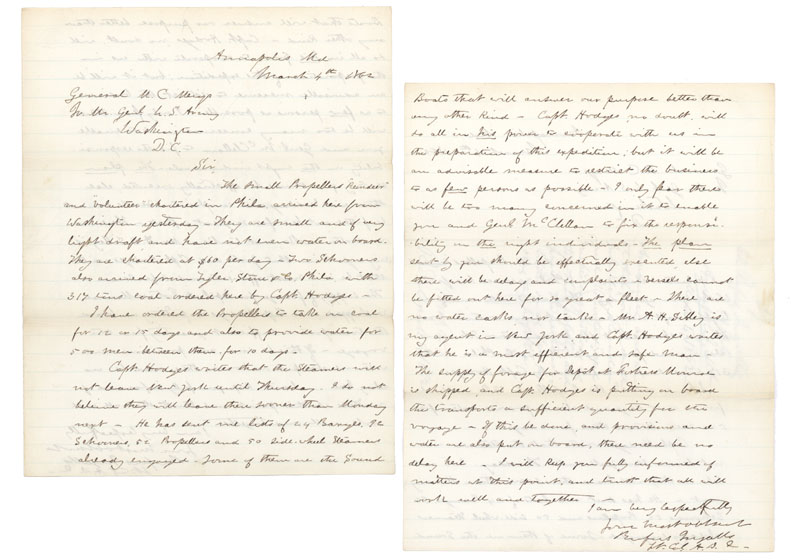 Annapolis Md
March 4th 1862
General M C Meigs
Qr Mr Genl U S Army
Washington
D. C.
Sir,
The small Propellers "Reindeer"
and Volunteer chartered in Phila arrived here from
Washington yesterday – They are small and of very
light draft and have not even water on board.
They are chartered at $60 per day – Two Schooners
also arrived from Tyler, Stone & Co Phila with
317 tons coal ordered here by Capt. Hodges –
I have ordered the Propellers to take on coal
for 12 or 15 days and also to provide water for
500 men between them for 10 days –
Capt Hodges writes that the Steamers will
not leave New York until Thursday. I do not
believe they will leave there sooner than Monday
next – He has sent me lists of 24 Barges, 92
Schooners, 52 Propellers and 50 Side-wheel Steamers
already engaged – Some of them are the Sound
Boats that will answer our purpose better than
any other Kind – Capt Hodges, no doubt, will
do all in his power to cooperate with us in
the preparation of this expedition; but it will be
an advisable measure to restrict the business
to as few persons as possible – I only fear there
will be too many concerned in it to enable
you and Genl McClellan to fix the responsi-
bility on the right individuals – The plan
sent by you should be effectually executed else
there will be delays and complaints – Vessels cannot
be fitted out here for so great a fleet – There are
no water casks nor tanks – Mr A. H. is
my agent in New York and Capt. Hodges writes
that he is a most efficient and safe man –
The supply of forage for Depot at Fortress Monroe
is shipped, and Capt Hodges is putting on board
the transports a sufficient quantity for the
voyage – If this be done, and provisions and
water are also put on board, there need be no
delay here – I will Keep you fully informed of
matters at this point, and trust that all will
work well and together
I am very respectfully
Your Most obt Servt
Rufus Ingalls
Lt. Col A. D. C.